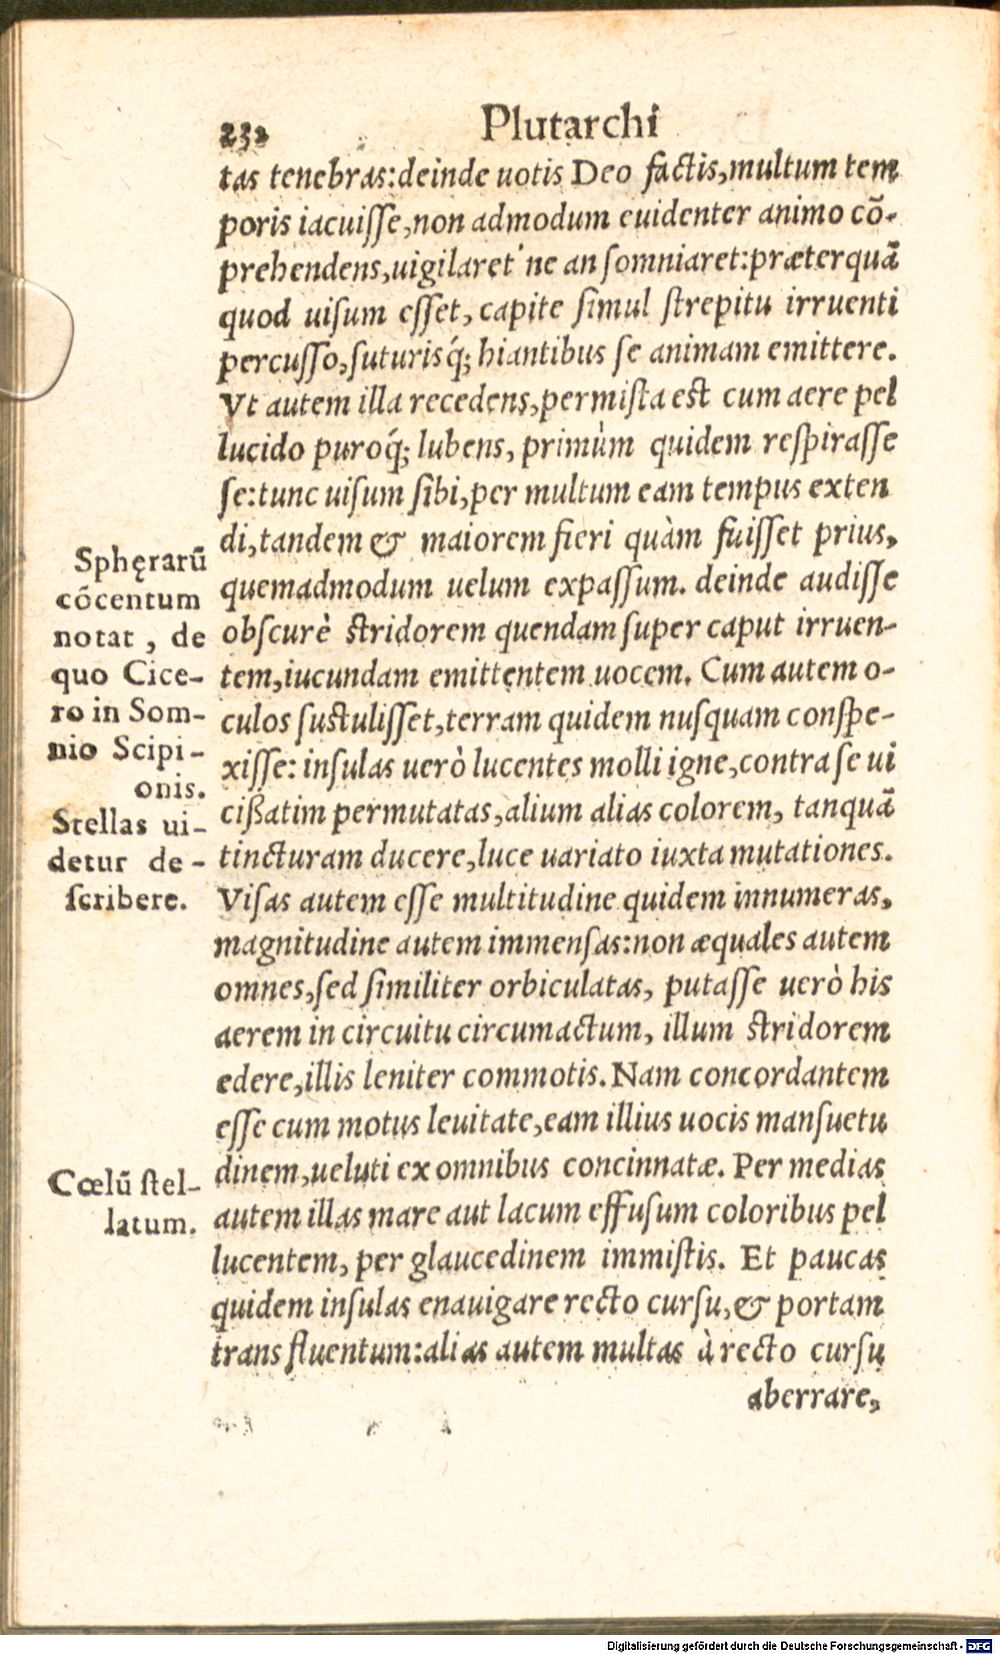 232 Plutarchi
tas tenebras:deinde uotis Deo factis,multum tem
poris iacuiſſe,non admodum euidenter animo cõ-
prehendens,uigilaret'ne an ſomniaret:præterquã
quod uiſum eſſet, capite ſimul ſtrepitu irruenti
percuſſo,ſuturisq́; hiantibus ſe animam emittere.
Vt autem illa recedens,permiſta eſt cum aere pel
lucido puroq́; lubens, primùm quidem reſpiraſſe
ſe:tunc uiſum ſibi,per multum eam tempus exten
di,tandem & maiorem fieri quàm fuiſſet prius,
quemadmodum uelum expaſſum. deinde audiſſe
obſcurè ſtridorem quendam ſuper caput irruen-
tem,iucundam emittentem uocem. Cum autem o-
culos ſuſtuliſſet,terram quidem nuſquam conſpe-
xiſſe: inſulas uerò lucentes molli igne,contra ſe ui
cißatim permutatas,alium alias colorem, tanquã
tincturam ducere,luce uariato iuxta mutationes.
Viſas autem eſſe multitudine quidem innumeras,
magnitudine autem immenſas:non æquales autem
omnes,ſed ſimiliter orbiculatas, putaſſe uerò his
aerem in circuitu circumactum, illum ſtridorem
edere,illis leniter commotis. Nam concordantem
eſſe cum motus leuitate,eam illius uocis manſuetu
dinem,ueluti ex omnibus concinnatæ. Per medias
autem illas mare aut lacum effuſum coloribus pel
lucentem, per glaucedinem immiſtis. Et paucas
quidem inſulas enauigare recto curſu,& portam
trans fluentum:alias autem multas à recto curſu
aberrare,
Sphęrarũ
cõcentum
notat, de
quo Cice-
ro in Som-
nio Scipi-
onis.
Stellas ui-
detur de-
ſcribere.
Cœlũ ſtel-
latum.
Digitalisierung gefördert durch die Deutsche Forschungsgemeinschaft - DFG